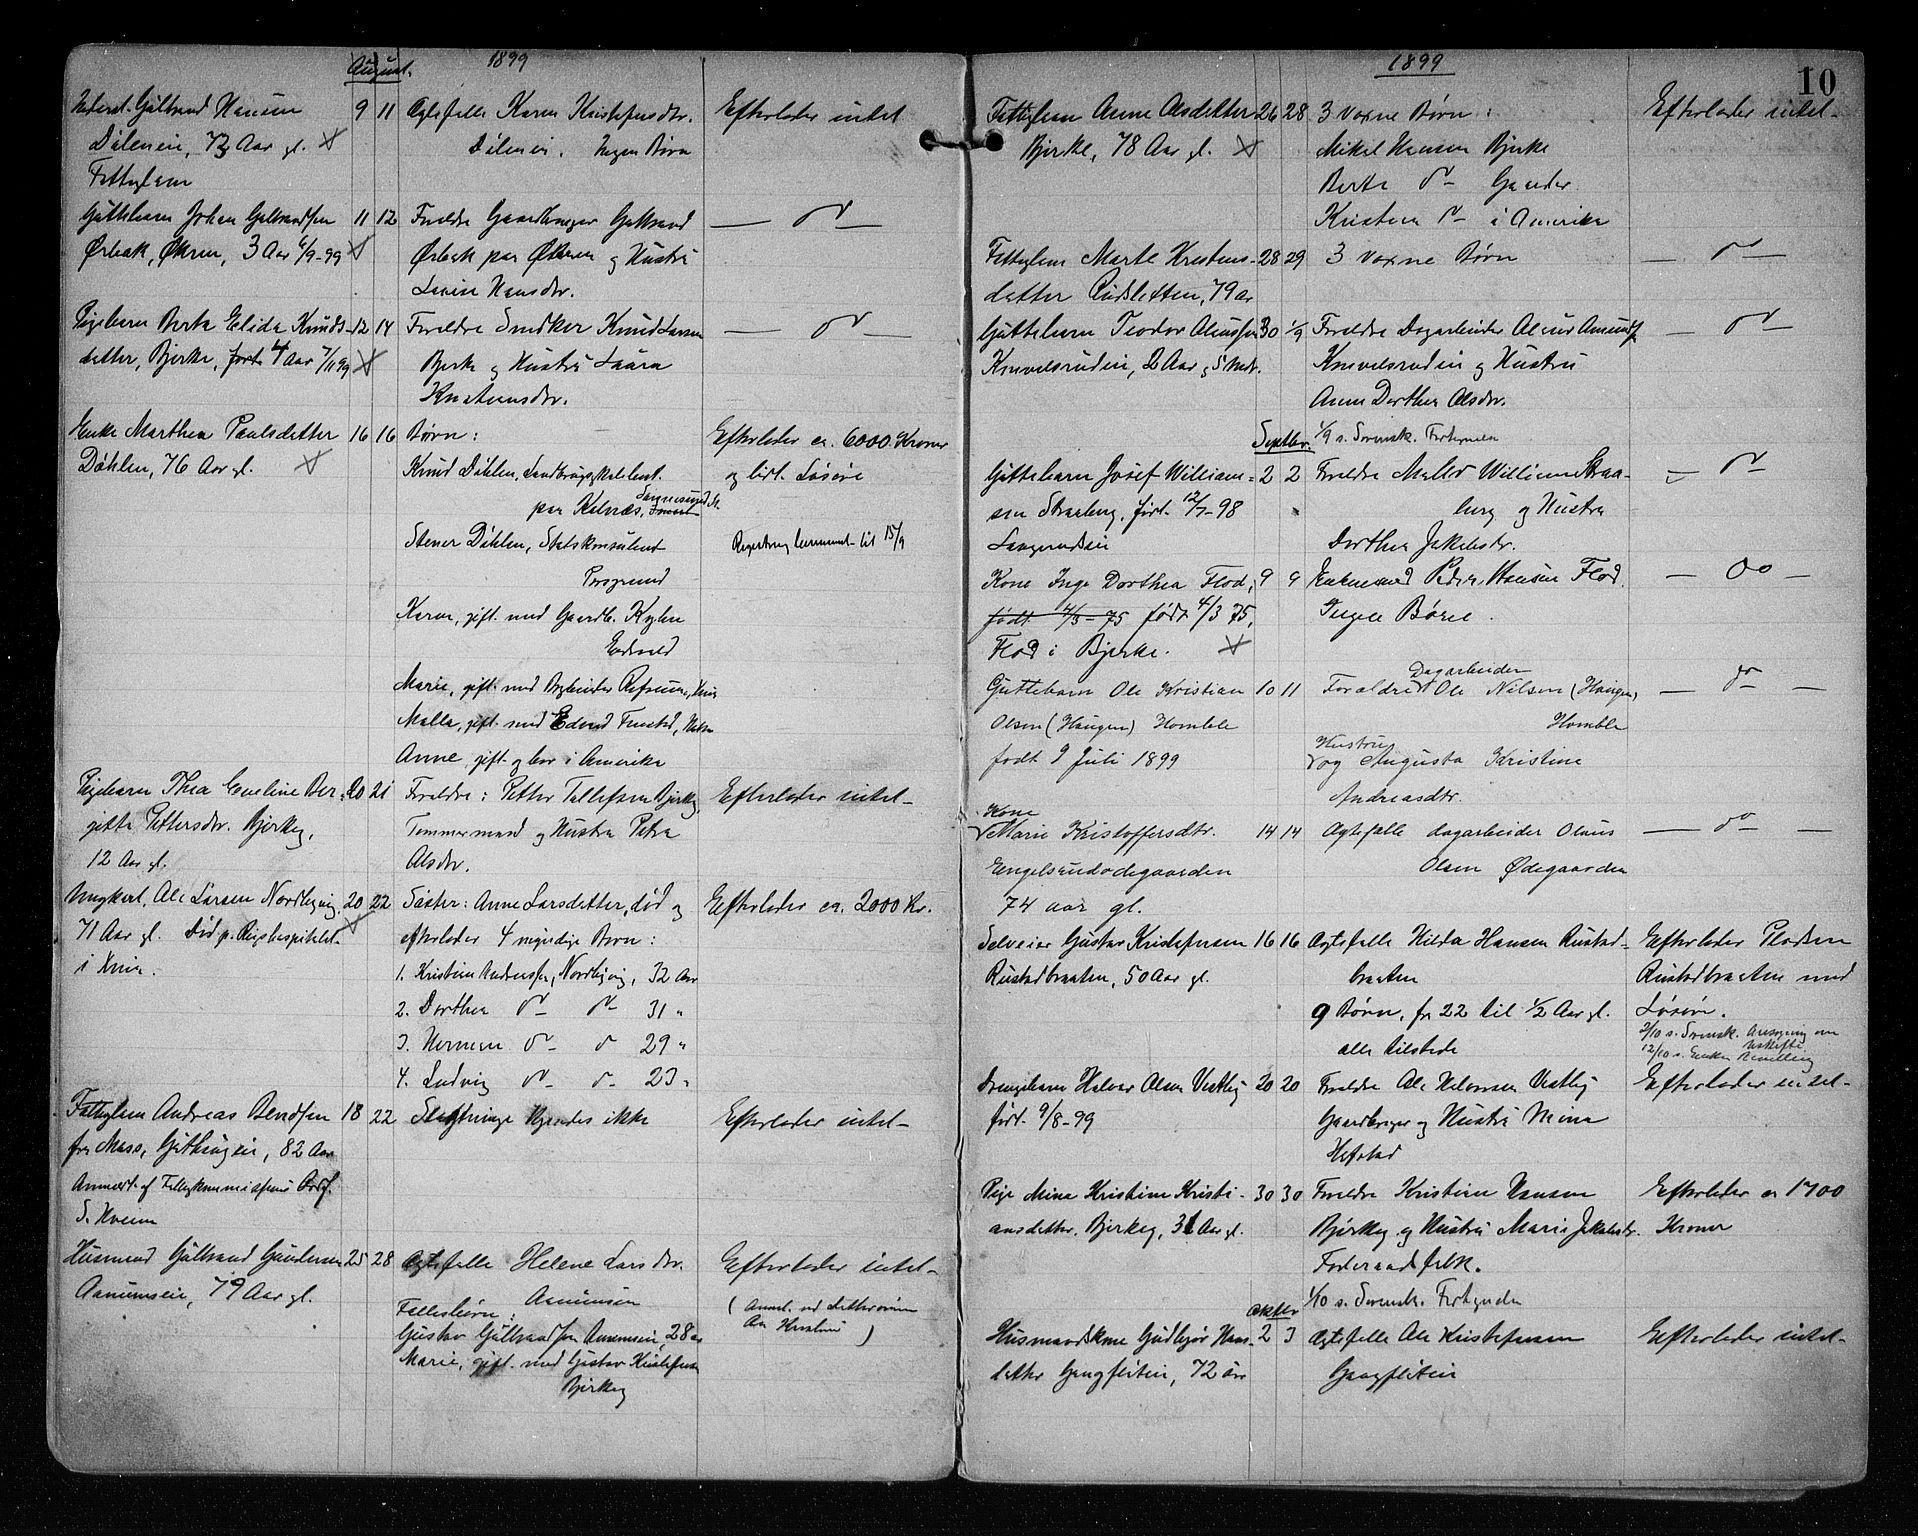 1899
August.
Gulbrand Hansen 9 11 Ægtefælle Karen Kristofersdtr. Efterlader intet
Dæleneie, 73 Aar gl. Dæleneie. Ingen Børn
Fattiglem
Guttebarn Johan Gulbrandsen 11 12 Forældre Gaardbruger Gulbrand — do —
Ørbæk, Økren, 3 Aar 6/9-99 Ørbæk paa Økren og Hustru
Lovise Hansdtr.
Pigebarn Berta Elida Knuds- 12 14 Forældre Snedker Knud Larsen — do —
datter, Bjerke, født 4 Aar 7/11 99 Bjerke og Hustru Laura
Kristiansdtr.
Enke Marthea Paulsdatter 16 16 Børn: Efterlader ca. 6000 Kroner
Døhlen, 76 Aar gl. Knud Døhlen, og lidt Løsøre
paa Kalnæs, Sannesund St.
Stener Døhlen, Statskonsulent til 15/9
Porsgrund
Karen, gift med Gaardb.
Eidsvold
Marie, gift med
Malla, gift med Edvard
Anne, gift og bor i Amerika
Pigebarn Thea Eveline Ber- 20 21 Forældre: Petter Tollefsen Bjerkeg Efterlader intet-
gitta Pettersdtr. Bjerkeg, Tømmermand og Hustru Petra
12 Aar gl. Olsdtr.
Ungkarl, Ole Larsen Nordbyvig, 20 22 Søster: Anne Larsdatter, død og Efterlader ca. 2000 Kr.
71 Aar gl. Død p. Rigshospitalet efterlader 4 myndige Børn:
i Kr.nia. 1. Kristian Andersen, Nordbyvig, 32 Aar
2. Dorthea do do 31 "
3. Herman do- do 29 "
4. Ludvig do- do- 23 "
Fattiglem Andreas Bendsen 18 22 Slægtninge kjendes ikke Efterlader intet-
fra Moss, 82 Aar
Anmeldt af Fattigkommissionens Ordf.
S. Hveem
Husmand Gulbrand Gundersen 25 28 Ægtefælle Helene Larsdtr. Efterlader intet-
Aamumseie, 79 Aar gl. Aamumseie
Fællesbørn:
Gustav Gulbrandsen Aamumseie, 28 aar
Marie, gift med Gustav Kristofersen
Bjerkeg
1899
10
Fattiglem Anne Olsdatter 26 28 3 voxne Børn: Efterlader intet-
Bjerke, 78 Aar gl. Mikel Hansen Bjerke
Berte do-
Kristian do- i Amerika
Fattiglem Marte Kristens- 28 29 3 voxne Børn — do —
datter Rudsletten, 79 ar
Guttebarn Teodor Olausen 30 1/9 Forældre Dagarbeider Olaus Amunds. — do —
Knuvelsrudeie, 2 Aar og 5 Mdr. Knuvelsrudeie og Hustru
Anne Dorthea Olsdtr.
Septbr. 1/9 s. Sorensk. Fortegnelse
Guttebarn Josef William- 2 2 Forældre Maler William Straa- — do —
sen Straaberg, født 12/7-98 berg og Hustru
Langerudseie Dorthea Jakobsdtr.
Kone Inge Dorthea Flod, 9 9 Enkemand Peder Hansen Flod. — do —
født 4/3-75 født 4/3 75, Ingen Børn.
Flod i Bjerke.
Guttebarn Ole Kristian 10 11 Forældre Dagarbeider Ole Nilsen (Haugen) — do —
Olsen (Haugen) Homble Homble
født 9 Juli 1899 og Hustru Augusta Kristine
Andreasdtr.
Kone
Marie Kristoffersdtr. 14 14 Ægtefælle dagarbeider Olaus — do —
Engelsrudødegaarden Olsen Ødegaarden
74 aar gl.
Selveier Gustav Kristofersen 16 16 Ægtefælle Hilda Hansen Rustad- Efterlader Pladsen
Rustadbraaten, 50 Aar gl. braaten Rustadbraaten med
9 Børn, fra 22 til 1/2 Aar gl. Løsøre.
alle tilstede 2/10 s. Sorensk. Ansøgning om Uskifte
12/10 s. Enken Bevilling
Drengebarn Halvor Olsen Vestby 20 20 Forældre Ole Halvorsen Vestby Efterlader intet-
født 9/8-99 Gaardbruger og Hustru Mina
Hofstad
Pige Mina Kristine Kristi- 30 30 Forældre Kristian Hansen Efterlader ca 1700
ansdatter, Bjerkeg, 31 Aar gl. Bjerkeg og Hustru Marie Jakobsdtr. Kroner
Føderaadsfolk.
1/10 s. Sorensk. Fortegnelse
Oktbr
Husmandskone Gudbjør Hans- 2 3 Ægtefælle Ole Kristofersen Efterlader intet-
datter Gangfløteie, 72 aar Gangfløteie